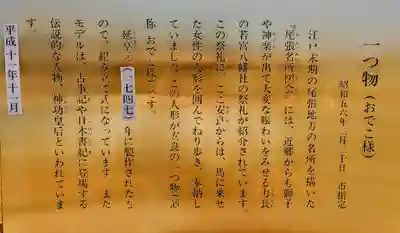 一つ物（おでこ様）
昭和五六年二月二十日　市指定
江戸末期の尾張地方の名所を描いた
「尾張名所図会」には、近郷からも獅子
や神楽が出て大変な賑わいをみせる力長
の若宮八幡社の祭礼が紹介されています。
この祭礼に、ここ安良からは、馬に乗せ
た女性の人形を囲んでねり歩き、奉納し
ていました。この人形が安良の一つ物（通
称 おでこ様）です。
延享四（一七四七）年に製作されたも
ので、組み立て式になっています。また
モデルは、古事記や日本書紀に登場する
伝説的な人物、神功皇后といわれていま
す。
平成十一年十一月